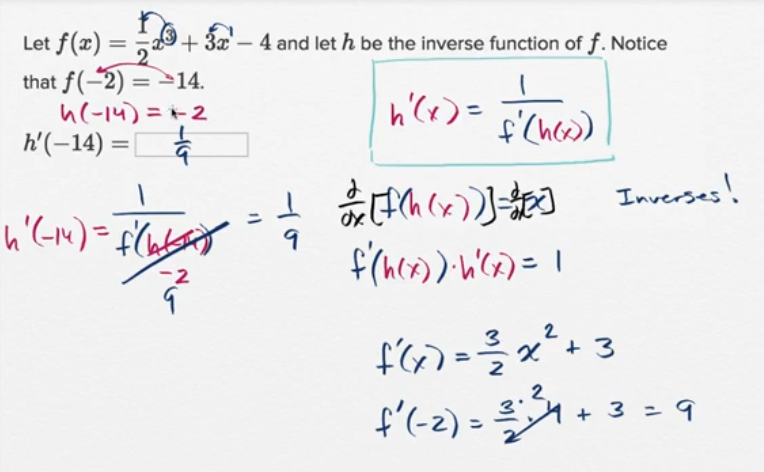 Let f(x) = 1/2 x³ + 3x¹ − 4 and let h be the inverse function of f. Notice
that f(−2) = −14.
h(-14) = -2
h′(−14) = 1/9
h'(x) = 1/f'(h(x))
h'(-14) = 1/f'(h(-14)) = 1/9
-2
9
d/dx [f(h(x))] = d/dx [x]
Inverses!
f'(h(x)) · h'(x) = 1
f'(x) = 3/2 x² + 3
f'(-2) = 3/2 · 4 + 3 = 9
2